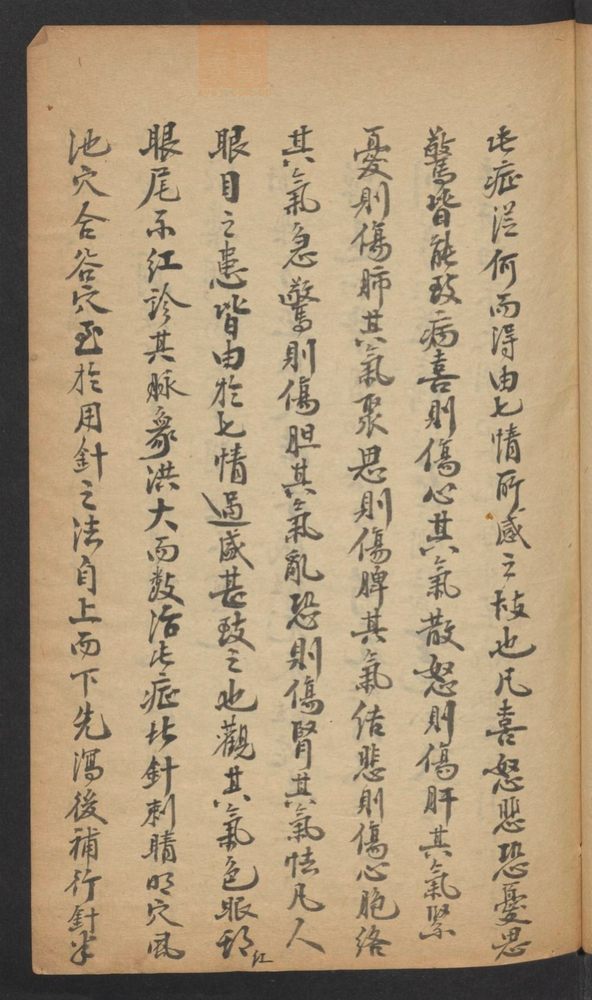 此症從何而得由七情所感之故也凡喜怒悲恐憂思
驚皆能致病喜則傷心其氣散怒則傷肝其氣緊
憂則傷肺其氣聚思則傷脾其氣结悲則傷心胞络
其氣急驚則傷胆其氣亂恐則傷腎其氣怯凡人
眼目之患皆由於七情過感甚致之也觀其氣色眼邪红
眼尾亦红診其脉象洪大而数治此症此針刺睛明穴風
池穴合谷穴至於用針之法自上而下先瀉後補行針半